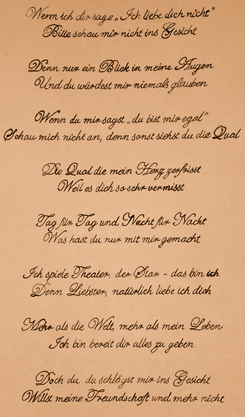 Wenn ich dir sage „Ich liebe dich nicht"
Bitte schau mir nicht ins Gesicht
Denn nur ein Blick in meine Augen
Und du würdest mir niemals glauben
Wenn du mir sagst „du bist mir egal"
Schau mich nicht an, denn sonst siehst du die Qual
Die Qual die mein Herz zerfrisst
Weil es dich so sehr vermisst
Tag für Tag und Nacht für Nacht
Was hast du nur mit mir gemacht
Ich spiele Theater, der Star - das bin ich
Denn Liebster, natürlich liebe ich dich
Mehr als die Welt, mehr als mein Leben
Ich bin bereit dir alles zu geben
Doch du, du schlägst mir ins Gesicht
Willst meine Freundschaft und mehr nicht